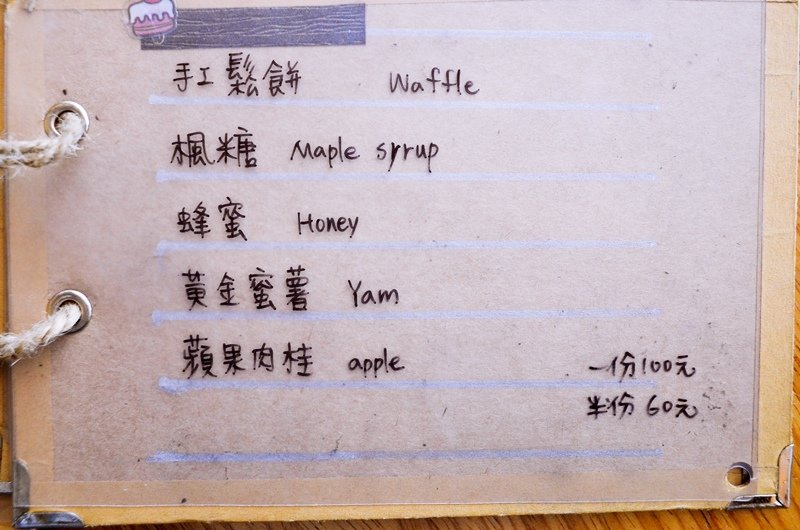 手工鬆餅 Waffle
楓糖 Maple syrup
蜂蜜 Honey
黃金蜜薯 Yam
蘋果肉桂 apple
一份100元
半份60元